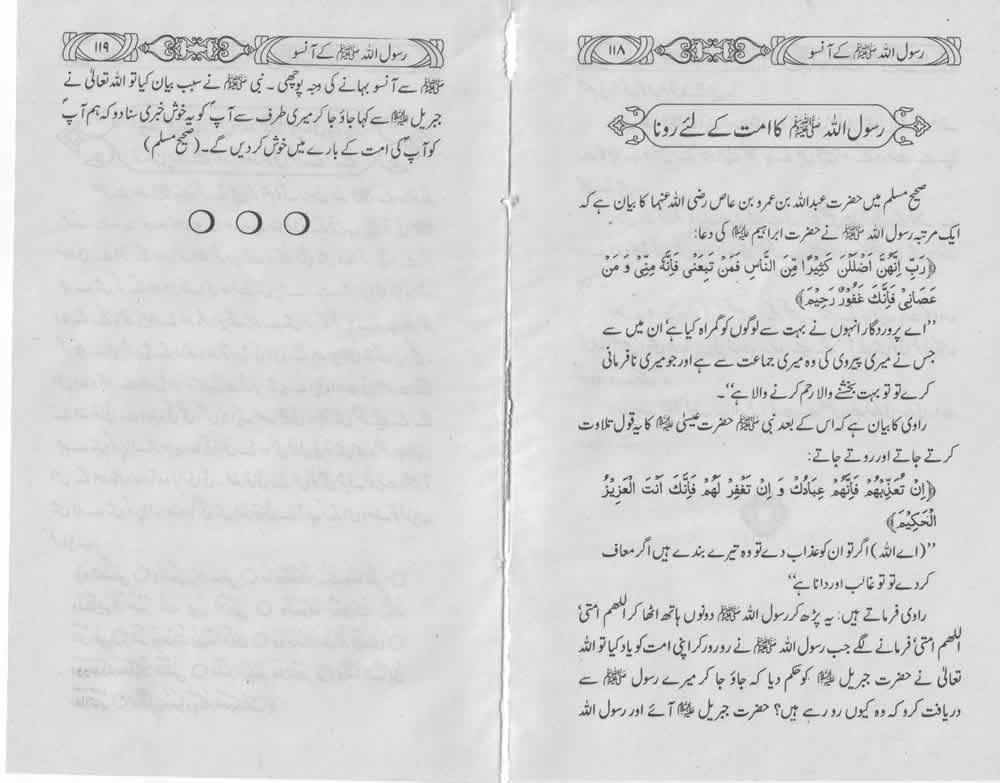 رسول اللہ ﷺ کے آنسو
۱۱۸
رسول اللہ ﷺ کا امت کے لئے رونا
صحیح مسلم میں حضرت عبداللہ بن عمرو بن عاص رضی اللہ عنہما کا بیان ہے کہ
ایک مرتبہ رسول اللہ ﷺ نے حضرت ابراہیم علیہ السلام کی دعا:
﴿رَبِّ اِنَّهُنَّ اَضْلَلْنَ كَثِيْرًا مِّنَ النَّاسِ فَمَنْ تَبِعَنِىْ فَاِنَّهٗ مِنِّىْ وَ مَنْ
عَصَانِىْ فَاِنَّكَ غَفُوْرٌ رَّحِيْمٌ﴾
’’اے پروردگار انہوں نے بہت سے لوگوں کو گمراہ کیا ہے‘ ان میں سے
جس نے میری پیروی کی وہ میری جماعت سے ہے اور جو میری نافرمانی
کرے تو تو بہت بخشنے والا رحم کرنے والا ہے‘‘۔
راوی کا بیان ہے کہ اس کے بعد نبی ﷺ حضرت عیسیٰ علیہ السلام کا یہ قول تلاوت
کرتے جاتے اور روتے جاتے:
﴿اِنْ تُعَذِّبْهُمْ فَاِنَّهُمْ عِبَادُكَ وَ اِنْ تَغْفِرْ لَهُمْ فَاِنَّكَ اَنْتَ الْعَزِيْزُ
الْحَكِيْمُ﴾
’’(اے اللہ) اگر تو ان کو عذاب دے تو وہ تیرے بندے ہیں اگر معاف
کر دے تو تو غالب اور دانا ہے‘‘
راوی فرماتے ہیں: یہ پڑھ کر رسول اللہ ﷺ دونوں ہاتھ اٹھا کر اللھم امتی‘
اللھم امتی‘ فرمانے لگے جب رسول اللہ ﷺ نے رو رو کر اپنی امت کو یاد کیا تو اللہ
تعالیٰ نے حضرت جبریل علیہ السلام کو حکم دیا کہ جاؤ جا کر میرے رسول ﷺ سے
دریافت کرو کہ وہ کیوں رو رہے ہیں؟ حضرت جبریل علیہ السلام آئے اور رسول اللہ
رسول اللہ ﷺ کے آنسو
۱۱۹
ﷺ سے آنسو بہانے کی وجہ پوچھی۔ نبی ﷺ نے سبب بیان کیا تو اللہ تعالیٰ نے
جبریل علیہ السلام سے کہا جاؤ جا کر میری طرف سے آپؐ کو یہ خوش خبری سنا دو کہ ہم آپؐ
کو آپؐ کی امت کے بارے میں خوش کر دیں گے۔ (صحیح مسلم)